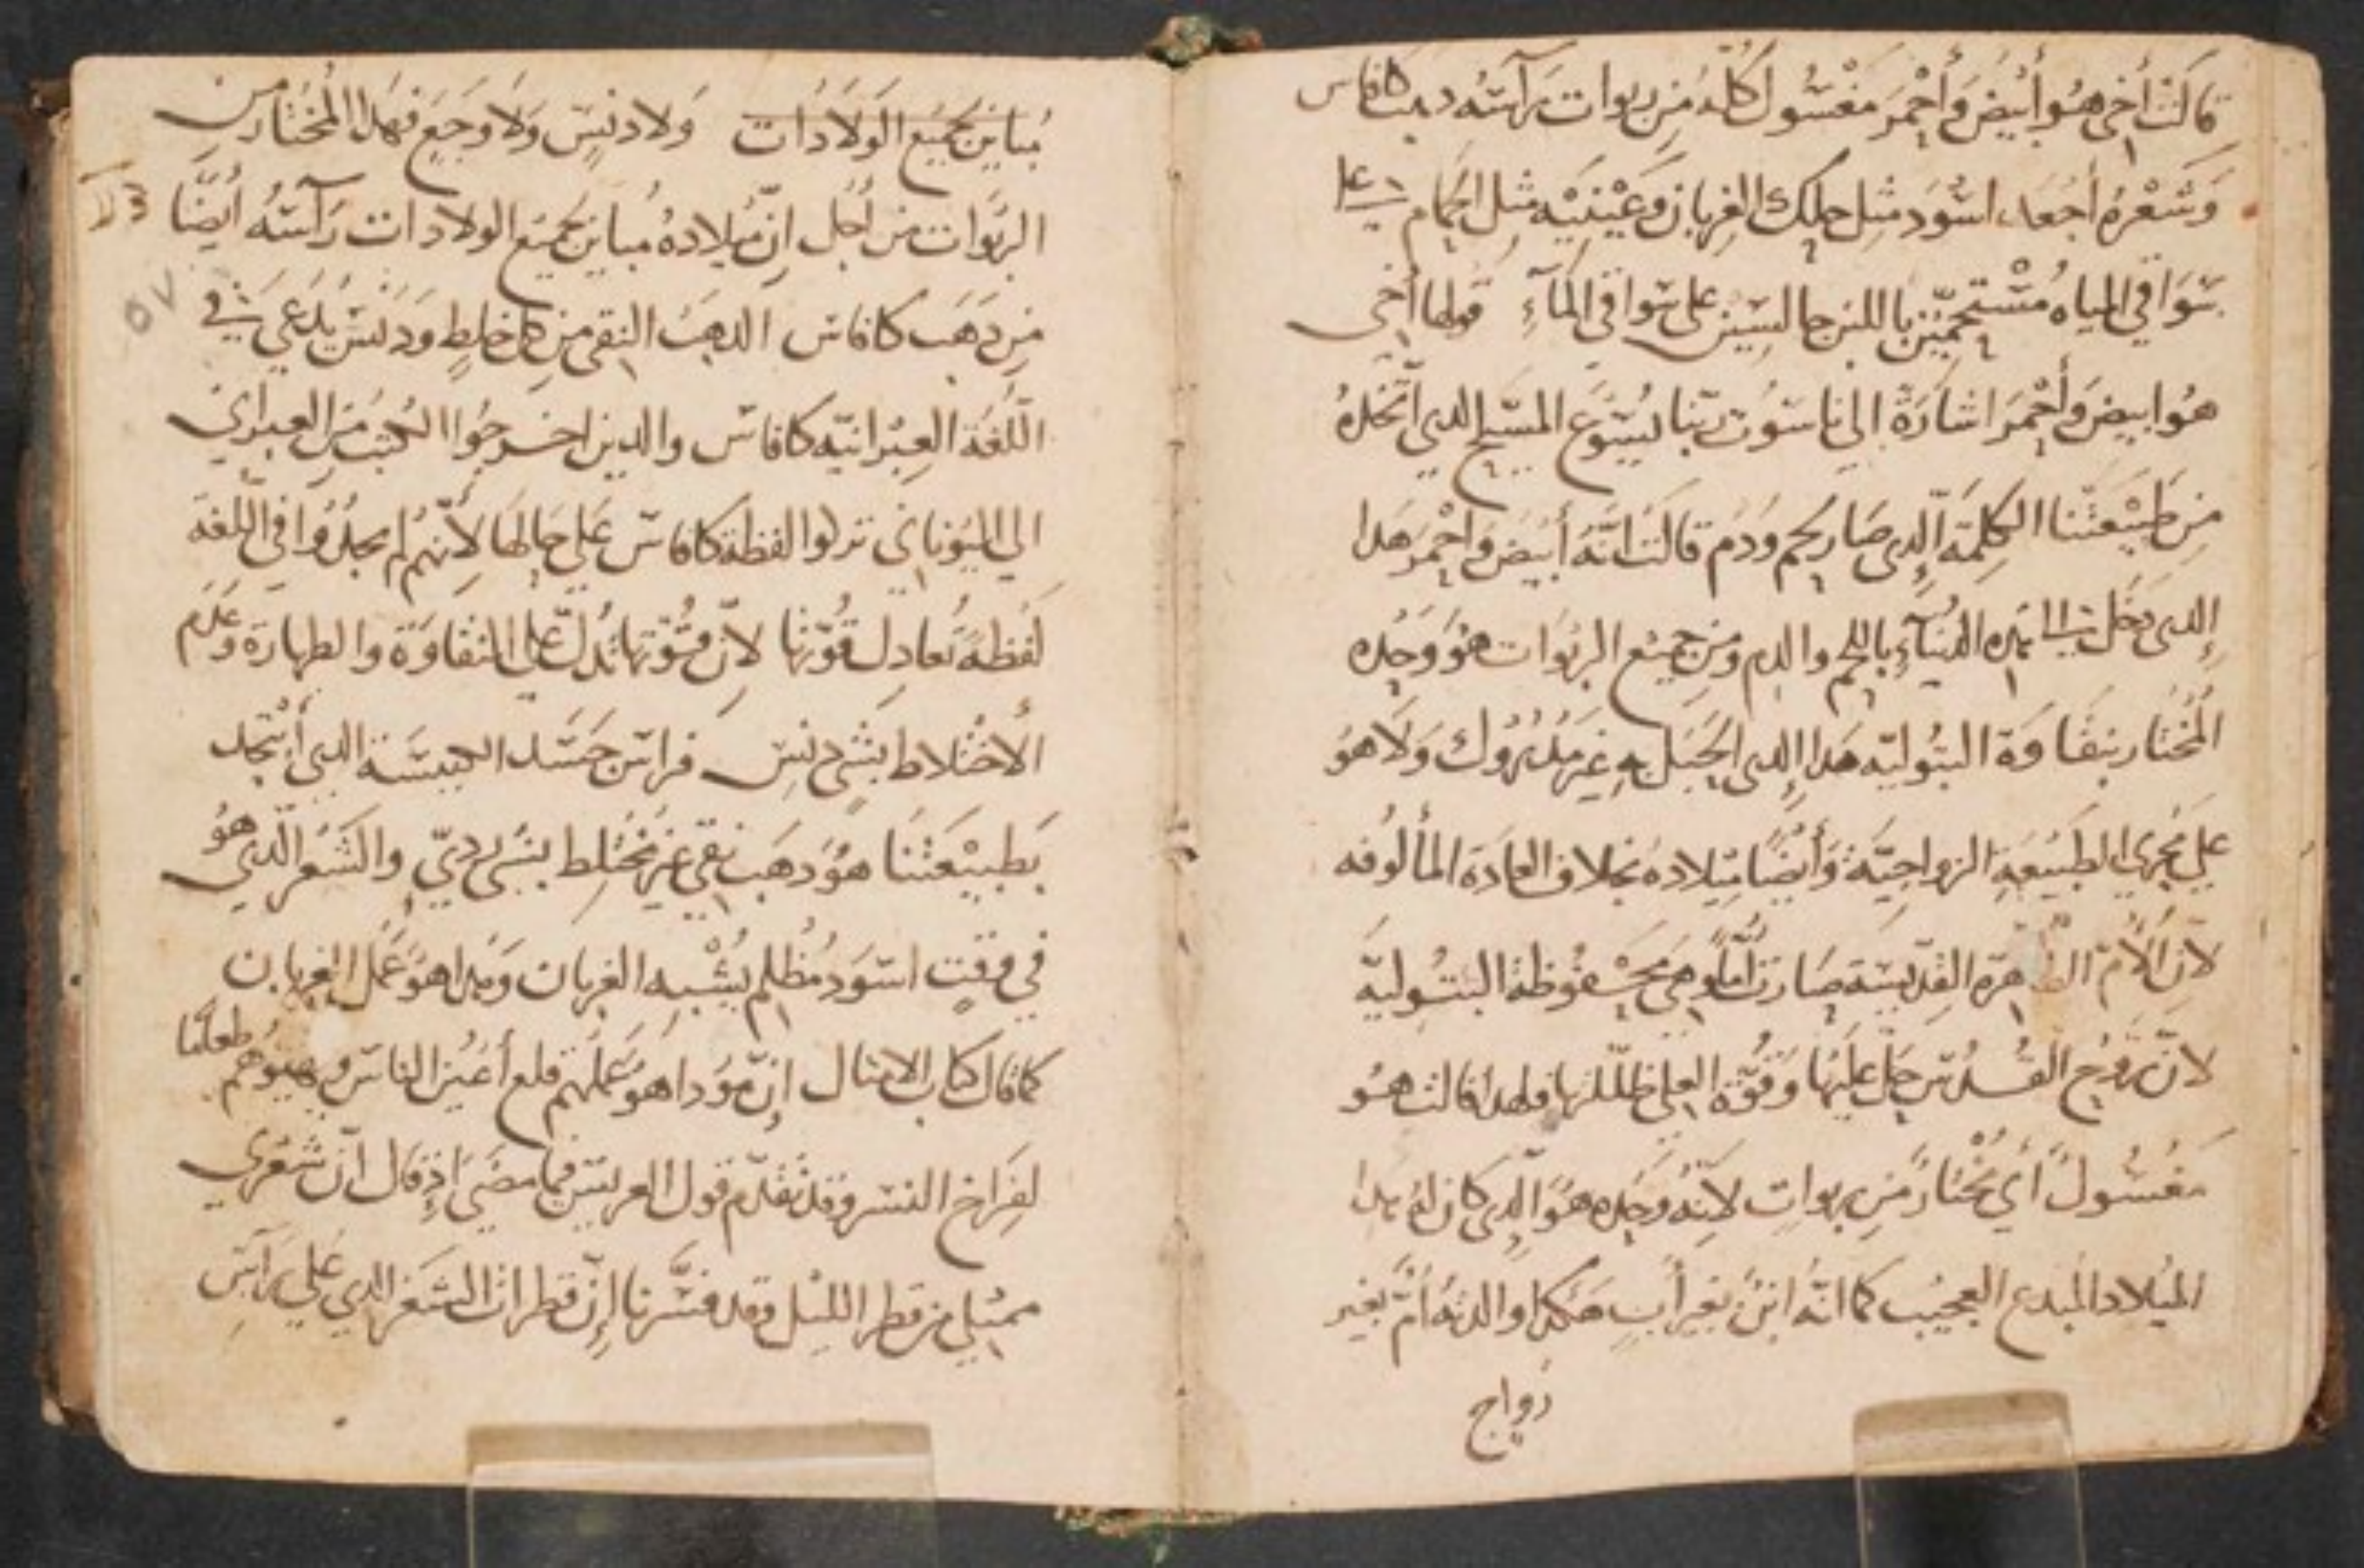 قالَت أخى هُوَ أبيَض وَأحْمَر مَغْسُول كُلّهُ مِن ربوات رَآسَه دهب كافاس
وَشَعْرهُ أجعَد اسْوَد مثل حلك الغربان وَعَيْنَيْه مثل الحَمام على
سَوَاقي المياه مُسْتحمّين باللبن جالسِين على سَواقي المآءِ قولها أخى
هُوَ ابيض وَأحْمَر اشارَة الى ناسَوُت ربّنا يسُوع المسَيح الدي اتّخدهُ
مِن طَبيْعَتنا الكلِمَة الّدِى صَار لحم ودَم قالَت انّهَ أبيَض وَاحْمَر هَدا
إلدى دَخَل الى هده الدُنيآءِ باللحم والدم ومن جميع الربَوات هوَ وَحده
المُختار بنقاوَة البتُوليّه هَدا الِدى الحَبَل بهِ غير مَدْرُوك وَلاَ هوُ
على مَجْرى الطَبيْعَةِ الزواجيَّة وَأيْضًا ميلادهُ بخلاف العادَة المألوُفه
لأن الأمّ الطاهرَة القِدّيسَة صَارَت أمّاً وهىَ محْفُوظة البتوُليّة
لأنّ رُوح القُدُس حَلّ علَيَهَا وَقُوّة العلى ظلّلتها ولهدا قالت هُوَ
مَغْسُولٌ أى مُختارٌ مِن ربواتِ لأنّهُ وَحَده هُوَ الّدِى كان لهُ هدا
الميْلاد المُبدع العجيْب كما انّه ابنٌ بغير أبٍ هَكدا والدتهُ أمٌّ بغير
زواج
مُبَاين لجميْع الوَلاَدَات وَلاَ دنسٍ وَلاَ وَجَعٍ فهَدا المُختَار مِن
الربَوات من أجَل انّ ميلادهُ مباين لجميْع الولادات رَآسَهُ أيْضًا
مِن دَهَب كافاس الدهبَ النقى من كل خلطٍ وَدَنَسٍ يُدعَى في
اللّغة العِبْرانيّه كافاس والدين اخرجُوا الكتب مَن العبراني
الى اليُوناني تركوا لفظة كافاس عَلى حَالهَا لأنّهمُ لم يجدُوا في اللّغة
لَفظةً تُعادل قُوّتها لأنّ قُوّتها تُدل على النقاوَة والطهارة وعَدَم
الأختلاط بشىءٍ دنس فراس جَسَد الكنيسَة الدي أتّحد
بَطبيْعَتنَا هُوَ دهَب نقى غير مُختَلِط بشىٍ رديّ والشَعر الّدى هُوَ
في وقتٍ اسَود مُظلم يُشْبه الغربان وَهدا هُوَ عَمَل الغربان
كما قال كتاب الامثال إنّ هؤدا هُوَ عَمَلهم قلع أعيُن الناس ويهيؤهم طعامًا
لفِرَاخ النسر وقد تقدّم قول العريس فيما مضَى إذ قال انّ شعرى
ممتلي من قطر الليْل وقد فسَّرنا إنّ قطرات الشعَر الدي عَلى رَآسِ
٥٧